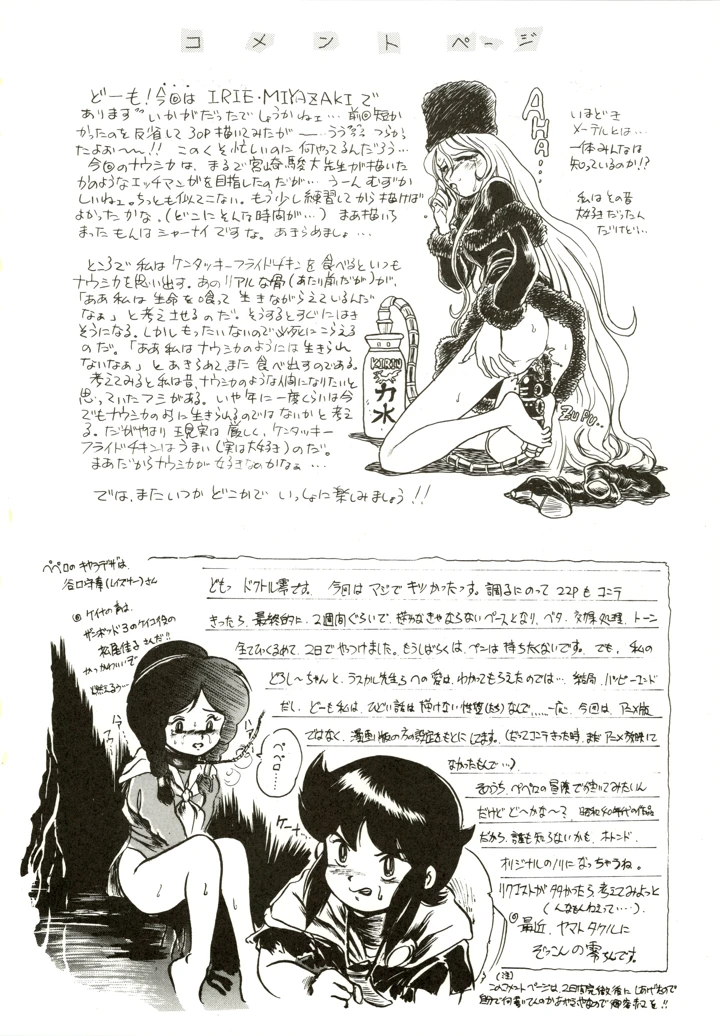 コメントページ
どーも!今回は IRIE・MIYAZAKI で
ありますいかがだったでしょうかねェ… 前回短か
かったのを反省して30P描いてみたが〜…うう つらかっ
たよおー!! このくそ忙しいのに何やってるんだろう…
今回のナウシカは、まるで宮崎駿大先生が描いた
かのようなエッチマンガを目指したのだが…うーん むずか
しいねェ。ちっとも似てこない。もう少し練習してから描けば
よかったかな。(どこにそんな時間が…) まあ描いち
まったもんはシャーナイですな。あきらめましょ…
ところで私はケンタッキーフライドチキンを食べるといつも
ナウシカを思い出す。あのリアルな骨(あたり前だが)が、
「ああ私は生命を喰って生きながらえているんだ
なぁ」と考えさせるのだ。そうするとすぐにはき
そうになる。しかしもったいないので必死にこらえる
のだ。「ああ私はナウシカのようには生きられ
ないなぁ」とあきらめて、また食べ出すのである。
考えてみると私は昔、ナウシカのような人間になりたいと
思っていたフシがある。いや年に一度くらいは今
でもナウシカの様に生きられるのではないかと考え
る。だがやはり現実は厳しく、ケンタッキー
フライドチキンはうまい(実は大好き)のだ。
まあだからナウシカが好きなのかなぁ…
では、またいつかどこかでいっしょに楽しみましょう!!
AHA...
いまどき
メーテルとは…
一体みんなは
知っているのか!?
私はその昔
大好きだったん
だけど…
KIRIN
力水
ZUPU..
ペペロのキャラデザは、
谷口守泰(レイズナー)さん
◎ケイナの声は、
ザンボット3のケイコ役の
松尾佳子さんだ!!
やっかわいいぞ
燃えるぅ…
どもっ ドクトル零です。今回はマジでキツかったっす。調子にのって22Pもコンテ
きったら、最終的に、2週間ぐらいで、描かなきゃならないペースとなり、ベタ・効果処理、トーン
全てひっくるめて、2日でやっつけました。もうしばらくは、ペンは持ちたくないです。でも、私の
どろし〜ちゃんと、ラスカル先生ら への愛は、わかってもらえたのでは… 結局、ハッピーエンド
だし、どーも私は、ひどい話は描けない性質(たち)なんで……一応、今回は、アニメ版
ではなく、漫画版の方の設定をもとにしてます。(だってコンテきった時、まだアニメ放映して
なかったもんで…)
そのうち、ペペロの冒険で描いてみたいん
だけど ど〜かな〜? 昭和40年代の作品
だから、誰も知らないかも。ホトンド、
オリジナルのノリになっちゃうね。
リクエストが多かったら、考えてみよっと
(んなもんねえって…)。
◎最近、ヤマトタケルに
ぞっこんの零ちんです。
ハァ
ハァ
ペペロ…
ケーナ…
(注)
このコメントページは、2日間完徹後にしあげたので
自分で何書いてんのかあやしいので御容赦を!!